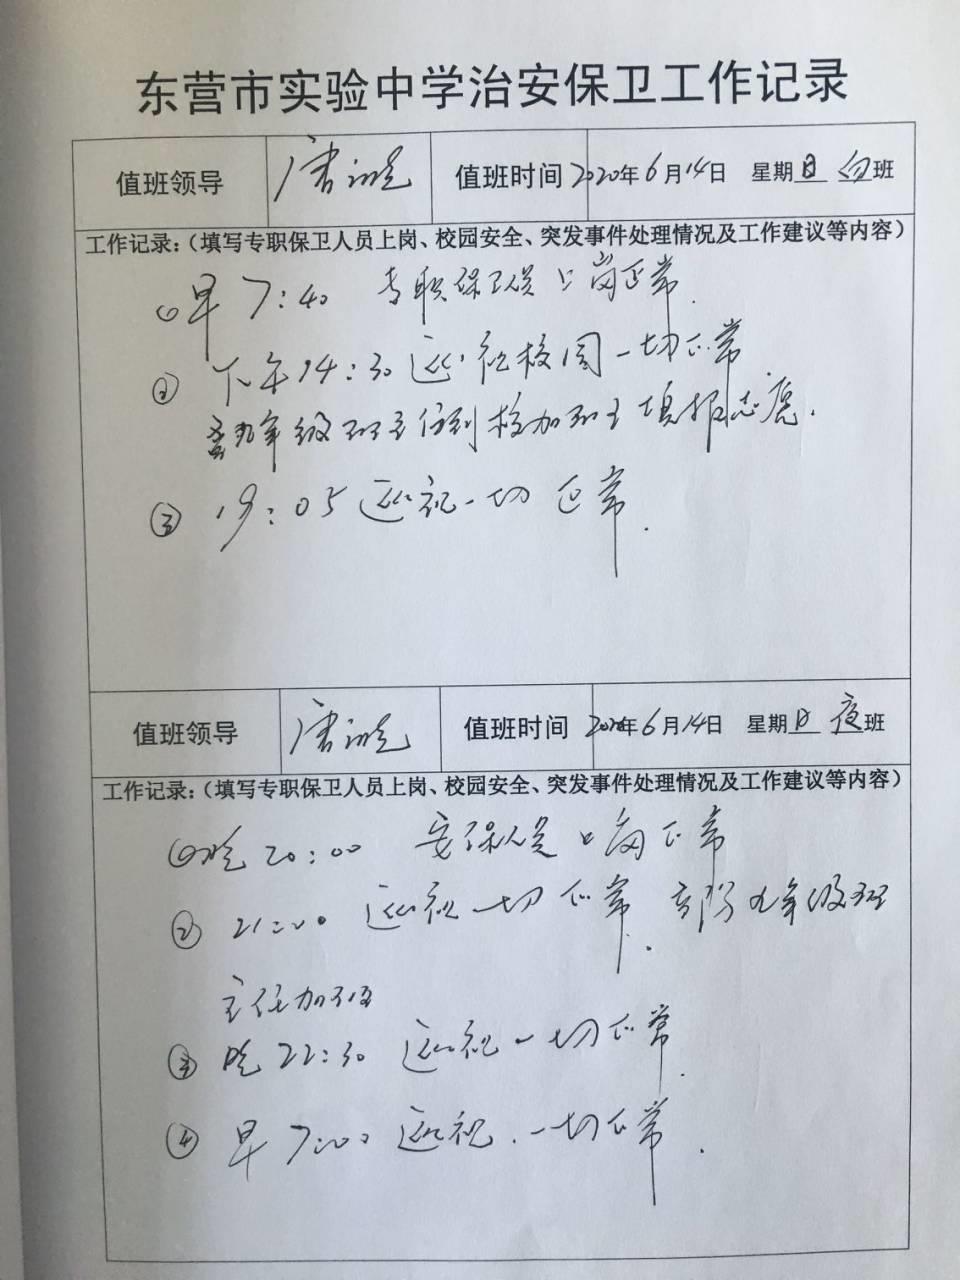 东营市实验中学治安保卫工作记录
值班领导 唐 值班时间 2020年6月14日 星期日 白班
工作记录：（填写专职保卫人员上岗、校园安全、突发事件处理情况及工作建议等内容）
①早7:40 专职保卫员上岗正常.
② 下午14:30 巡视校园一切正常
九年级班主任到校加班 填报志愿.
③ 19:05 巡视一切正常.
值班领导 唐 值班时间 2020年6月14日 星期日 夜班
工作记录：（填写专职保卫人员上岗、校园安全、突发事件处理情况及工作建议等内容）
①晚20:00 安保人员上岗正常
② 21:00 巡视一切正常. 部份九年级班
主任加班
③ 晚22:30 巡视一切正常.
④ 早7:00 巡视.一切正常.